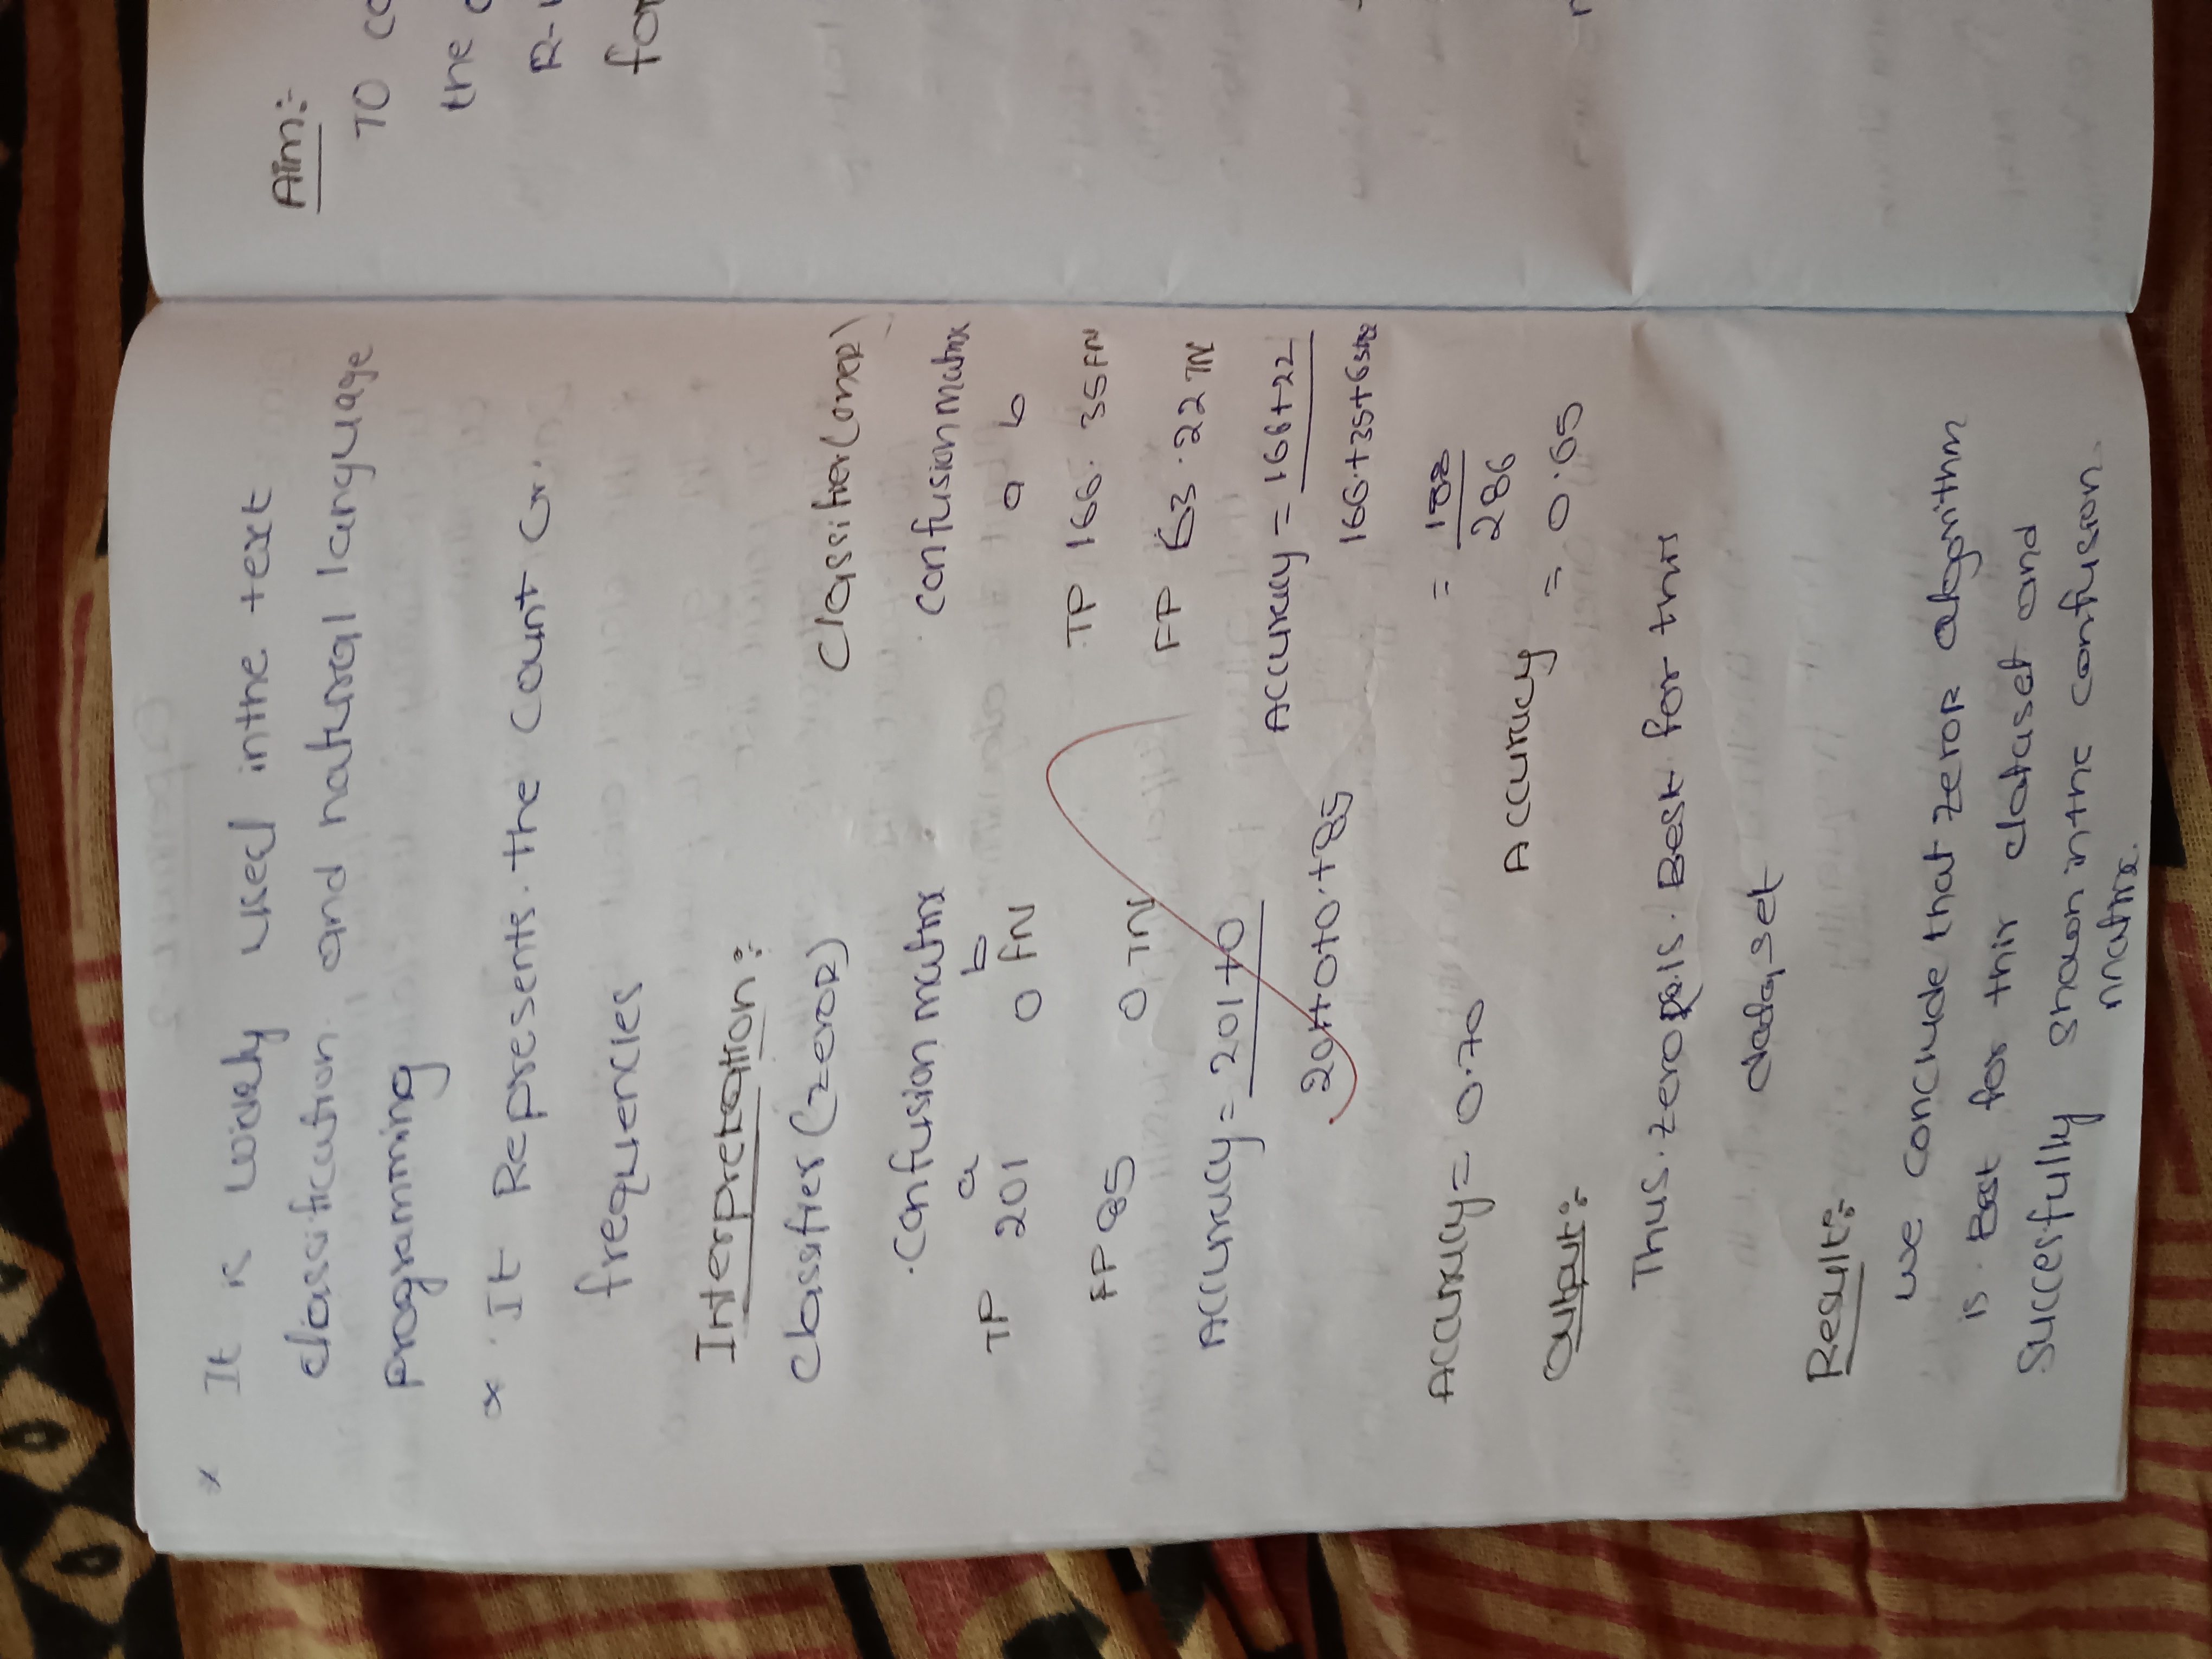 * It is widely used inthe text
classification and natural language
programming
* It Represents the count or
frequencies
Interpretation:
classifier (zeroR)
confusion matrix
a b
TP 201 0 FN
FP 85 0 TN
Accuracy = 201+0
201+0+0+85
Accuracy = 0.70
classifier (oneR)
confusion matrix
a b
TP 166 35 FN
FP 63 22 TN
Accuracy = 166+22
166+35+63+22
= 188
286
Accuracy = 0.65
Output:-
Thus zeroR is Best for this
data set
Result:-
we conclude that zeroR algorithm
is Best for thir dataset and
Succesfully shown inthe confusion
matrix.
Aim:-
TO co
the
R-
for